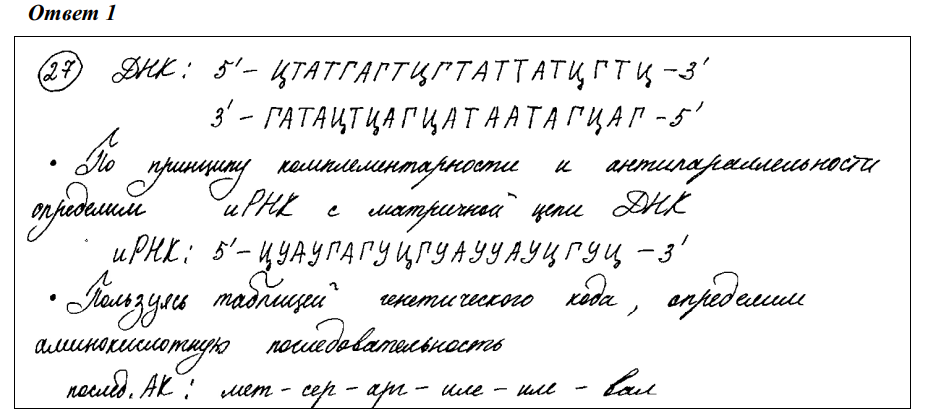 Ответ 1
27 ДНК: 5' - ЦТАТГАГТЦГТАТТАТЦГТЦ - 3'
3' - ГАТАЦТЦАГЦАТААТАГЦАГ - 5'
• По принципу комплементарности и антипараллельности
определим иРНК с матричной цепи ДНК
иРНК: 5' - ЦУАУГАГУЦГУАУУАУЦГУЦ - 3'
• Пользуясь таблицей генетического кода, определим
аминокислотную последовательность
послед. АК: мет - сер - арг - иле - иле - вал